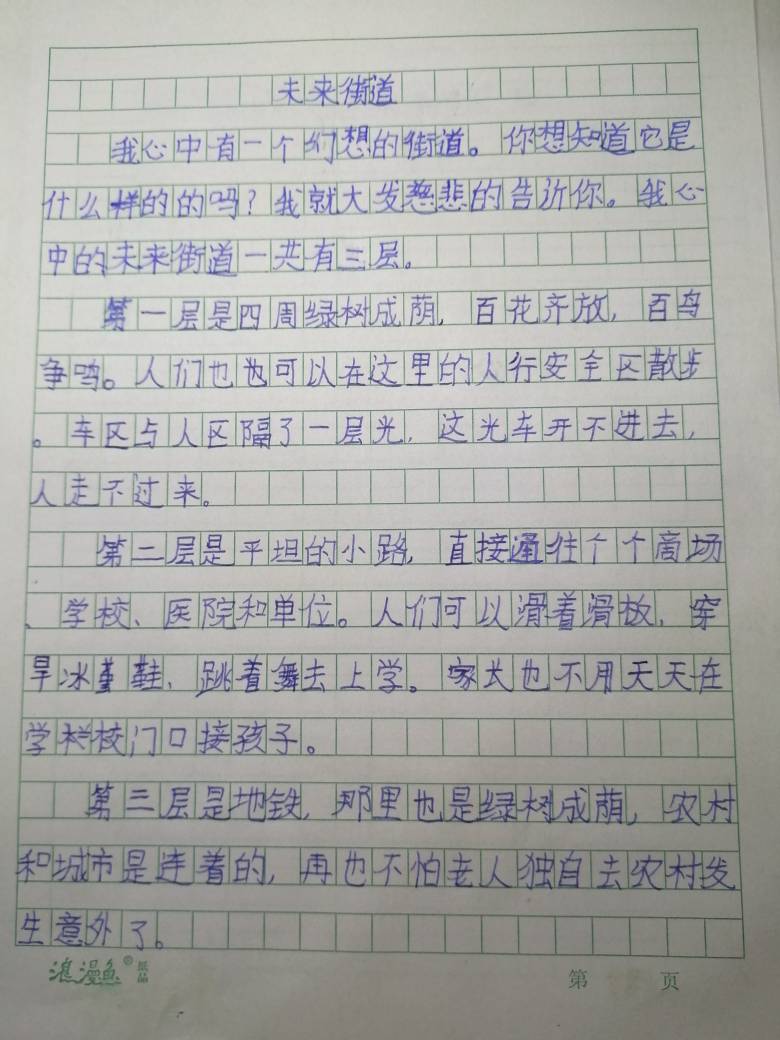 未来街道
我心中有一个幻想的街道。你想知道它是
什么样的的吗?我就大发慈悲的告诉你。我心
中的未来街道一共有三层。
第一层是四周绿树成荫,百花齐放,百鸟
争鸣。人们也也可以在这里的人行安全区散步
。车区与人区隔了一层光,这光车开不进去,
人走不过来。
第二层是平坦的小路,直接通往个个商场
、学校、医院和单位。人们可以滑着滑板,穿
旱冰鞋、跳着舞去上学。家长也不用天天在
学校门口接孩子。
第三层是地铁,那里也是绿树成荫,农村
和城市是连着的,再也不怕老人独自去农村发
生意外了。
浪漫鱼®纸品
第 页